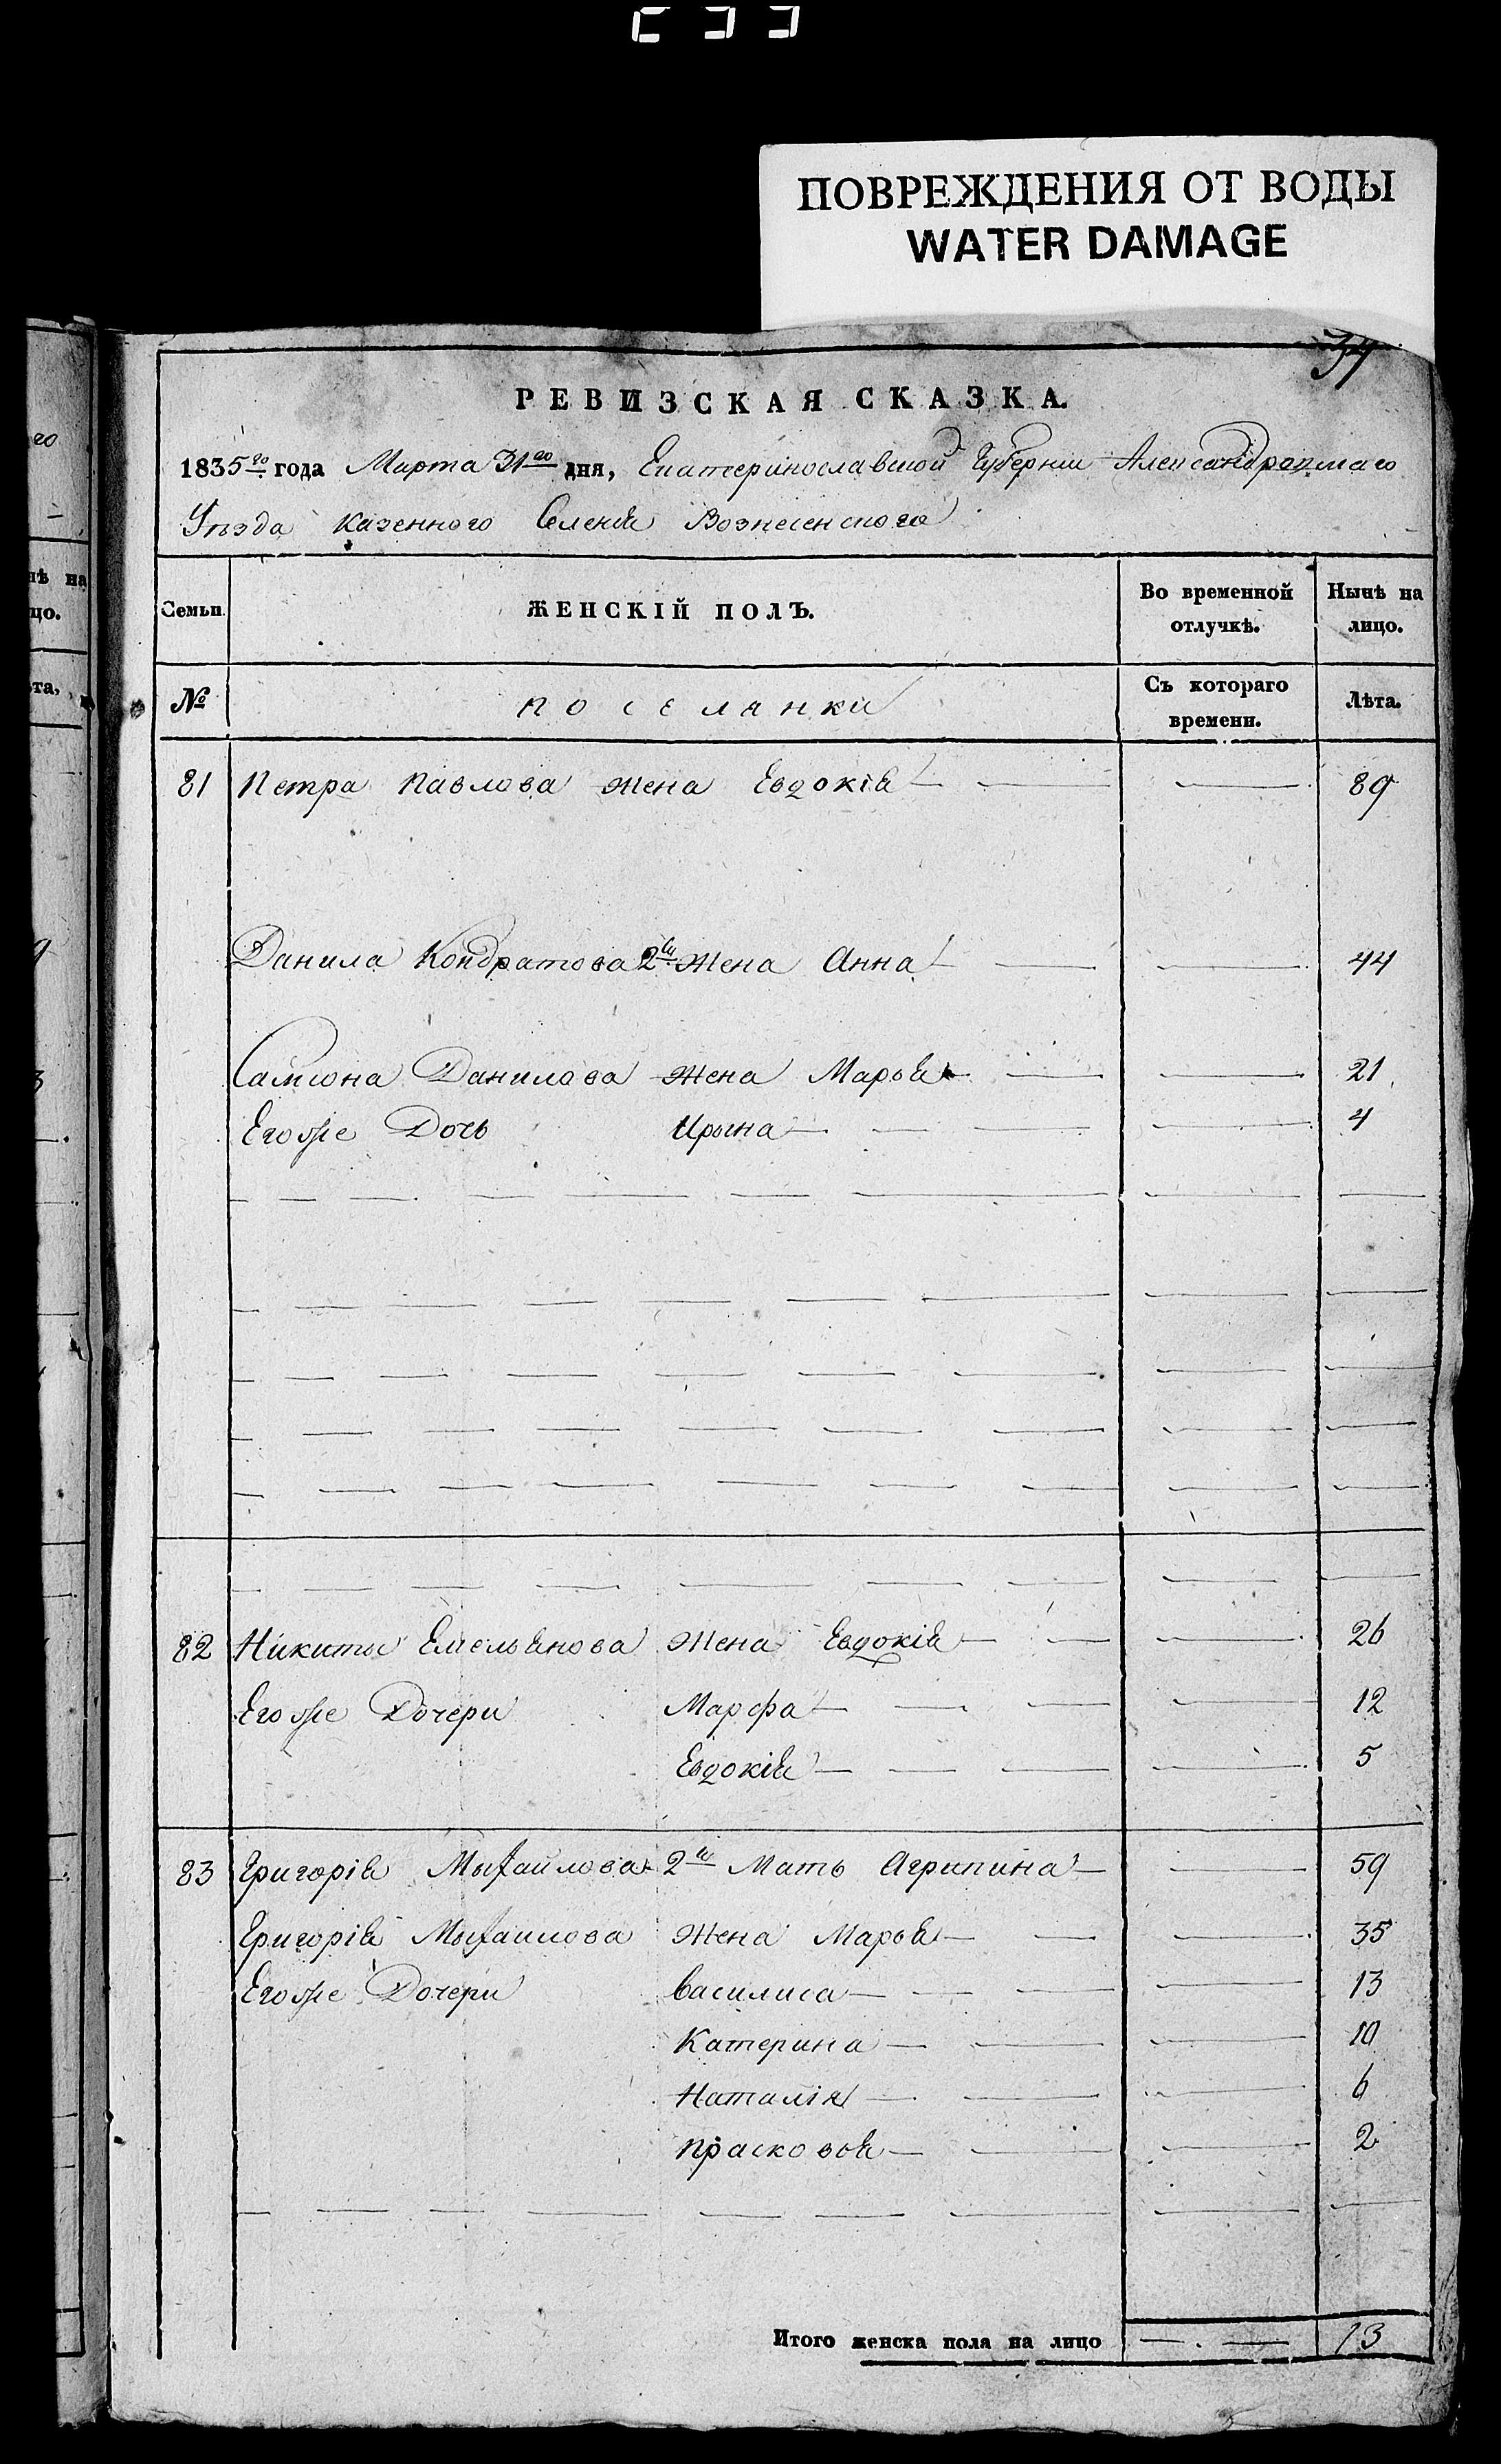 ПОВРЕЖДЕНИЯ ОТ ВОДЫ
WATER DAMAGE
РЕВИЗСКАЯ СКАЗКА.
1835го года Марта 31го дня, Екатеринославской Губернии Александровскаго
Уѣзда казенного Селенія Вознесенского
Семьи. ЖЕНСКІЙ ПОЛЪ. Во временной отлучкѣ. Нынѣ на лицо.
№ поселянки Съ котораго времени. Лѣта.
81 Петра Павлова жена Евдокія — — 89
Данила Кондратова 2я жена Анна — — 44
Самсона Данилова жена Марья — — 21
Егоже Дочь Ирына — — 4
82 Никиты Емельянова жена Евдокія — — 26
Егоже Дочери Марфа — — 12
Евдокія — — 5
83 Григорія Мыхайлова 2я Мать Агрипина — — 59
Григорія Мыхаилова жена Марья — — 35
Егоже Дочери Василиса — — 13
Катерина — — 10
Наталія — — 6
Прасковья — — 2
Итого женска пола на лицо — 13